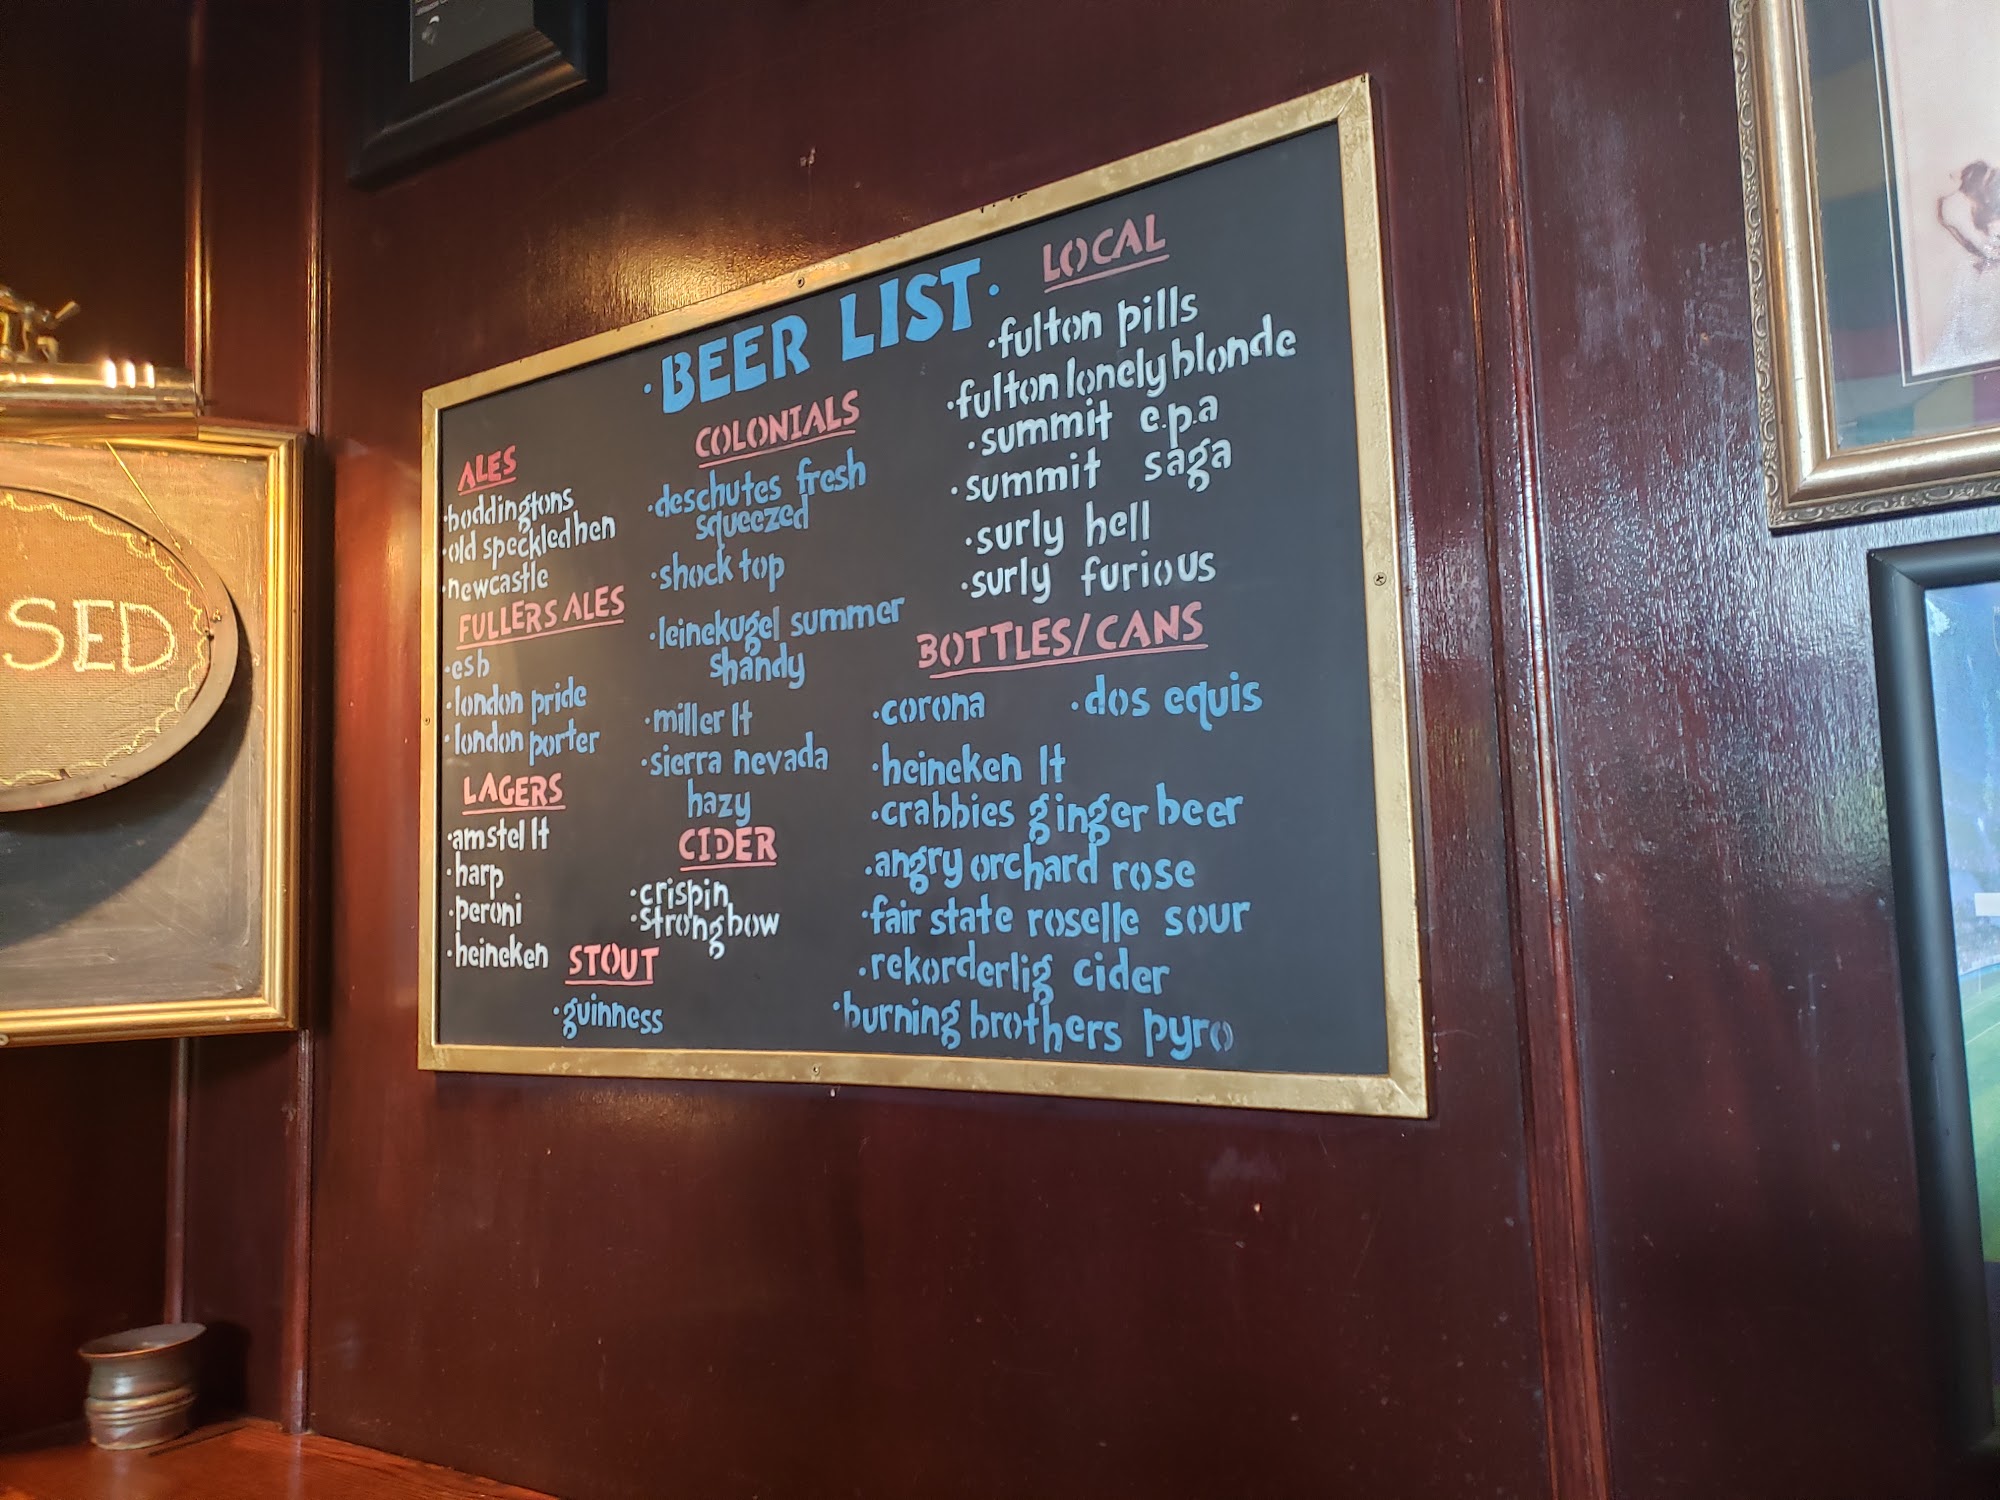 SED
·BEER LIST·
ALES
·boddingtons
·old speckled hen
·newcastle
FULLERS ALES
·esb
·london pride
·london porter
LAGERS
·amstel lt
·harp
·peroni
·heineken
COLONIALS
·deschutes fresh
squeezed
·shock top
·leinekugel summer
shandy
·miller lt
·sierra nevada
hazy
CIDER
·crispin
·strongbow
STOUT
·guinness
LOCAL
·fulton pills
·fulton lonely blonde
·summit e.p.a
·summit saga
·surly hell
·surly furious
BOTTLES/CANS
·corona ·dos equis
·heineken lt
·crabbies ginger beer
·angry orchard rose
·fair state roselle sour
·rekorderlig cider
·burning brothers pyro